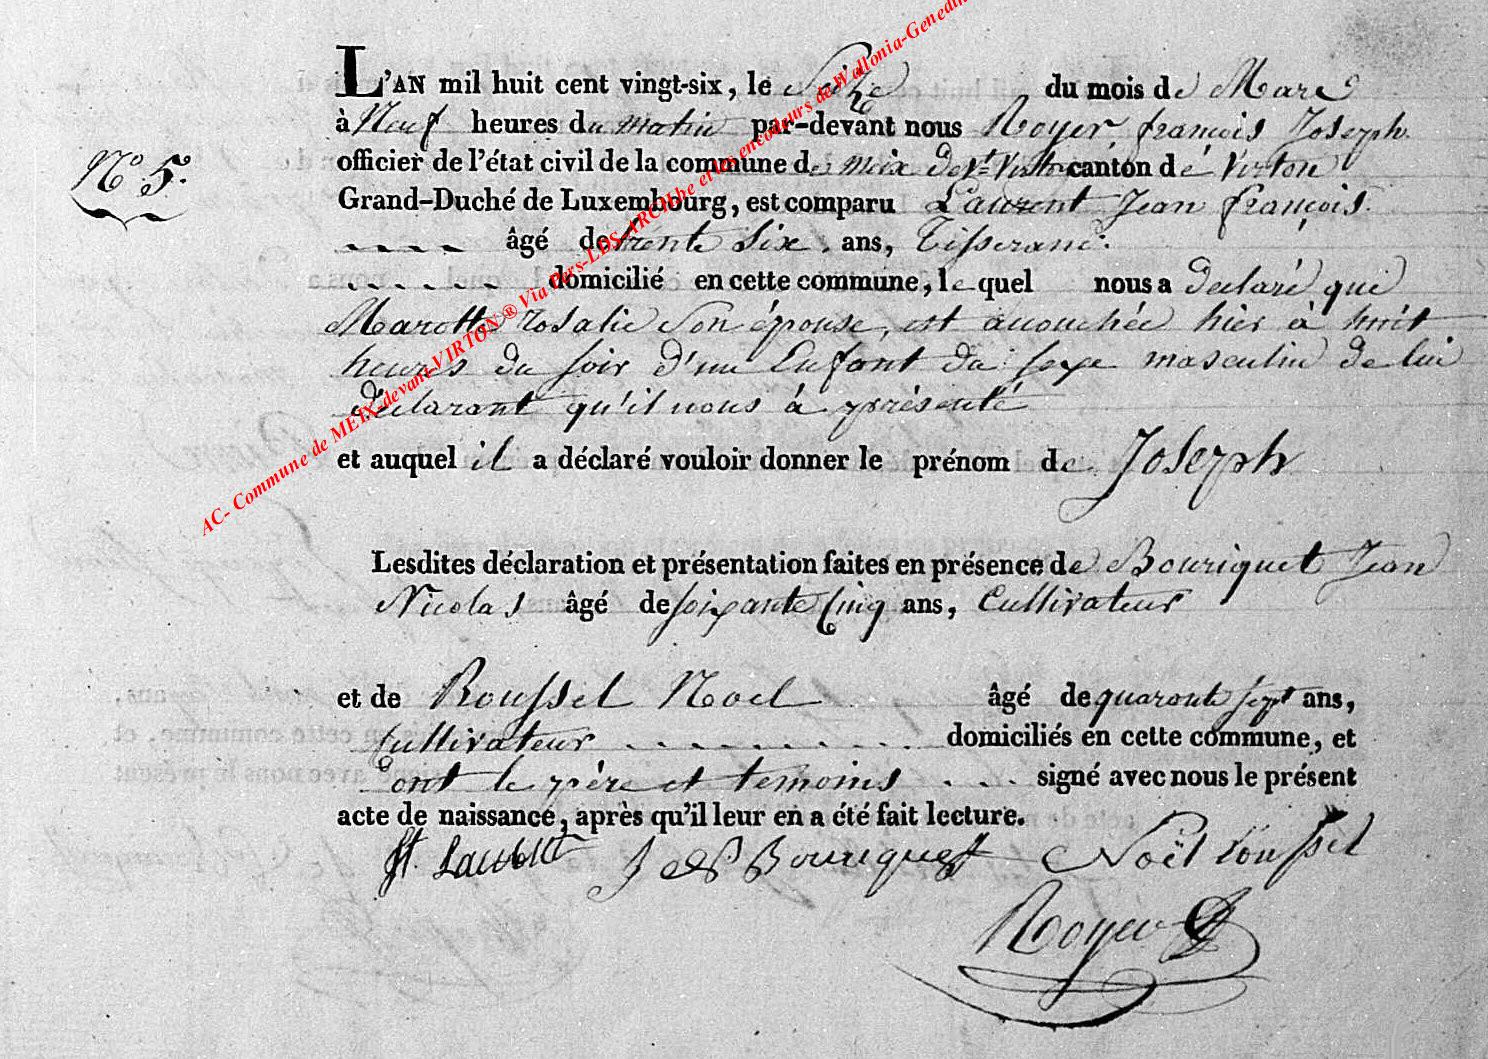 L'AN mil huit cent vingt-six, le Seize du mois de Mars
à Neuf heures du matin par-devant nous Royer françois Joseph
officier de l'état civil de la commune de meix devt Virton canton de Virton
N° 5.
Grand-Duché de Luxembourg, est comparu Laurent Jean françois
âgé de trente Six ans, Tisserand.
domicilié en cette commune, le quel nous a declaré que
Marotte rosalie Son épouse, est accouchée hier à huit
heures du soir d'un Enfant du sexe masculin de lui
déclarant qu'il nous à présenté
et auquel il a déclaré vouloir donner le prénom de Joseph
Lesdites déclaration et présentation faites en présence de Bouriquet Jean
Nicolas âgé de soixante Cinq ans, Cultivateur
et de Roussel Noel âgé de quarante sept ans,
Cultivateur . . . . . . . . domiciliés en cette commune, et
ont le père et temoins . . . signé avec nous le présent
acte de naissance, après qu'il leur en a été fait lecture.
Laurent J N Bouriquet Noël roussel
Royer
AC- Commune de MEIX-devant-VIRTON ® Via Pers-LDS-ARCH.be et les encodeurs de Wallonia-Genealo